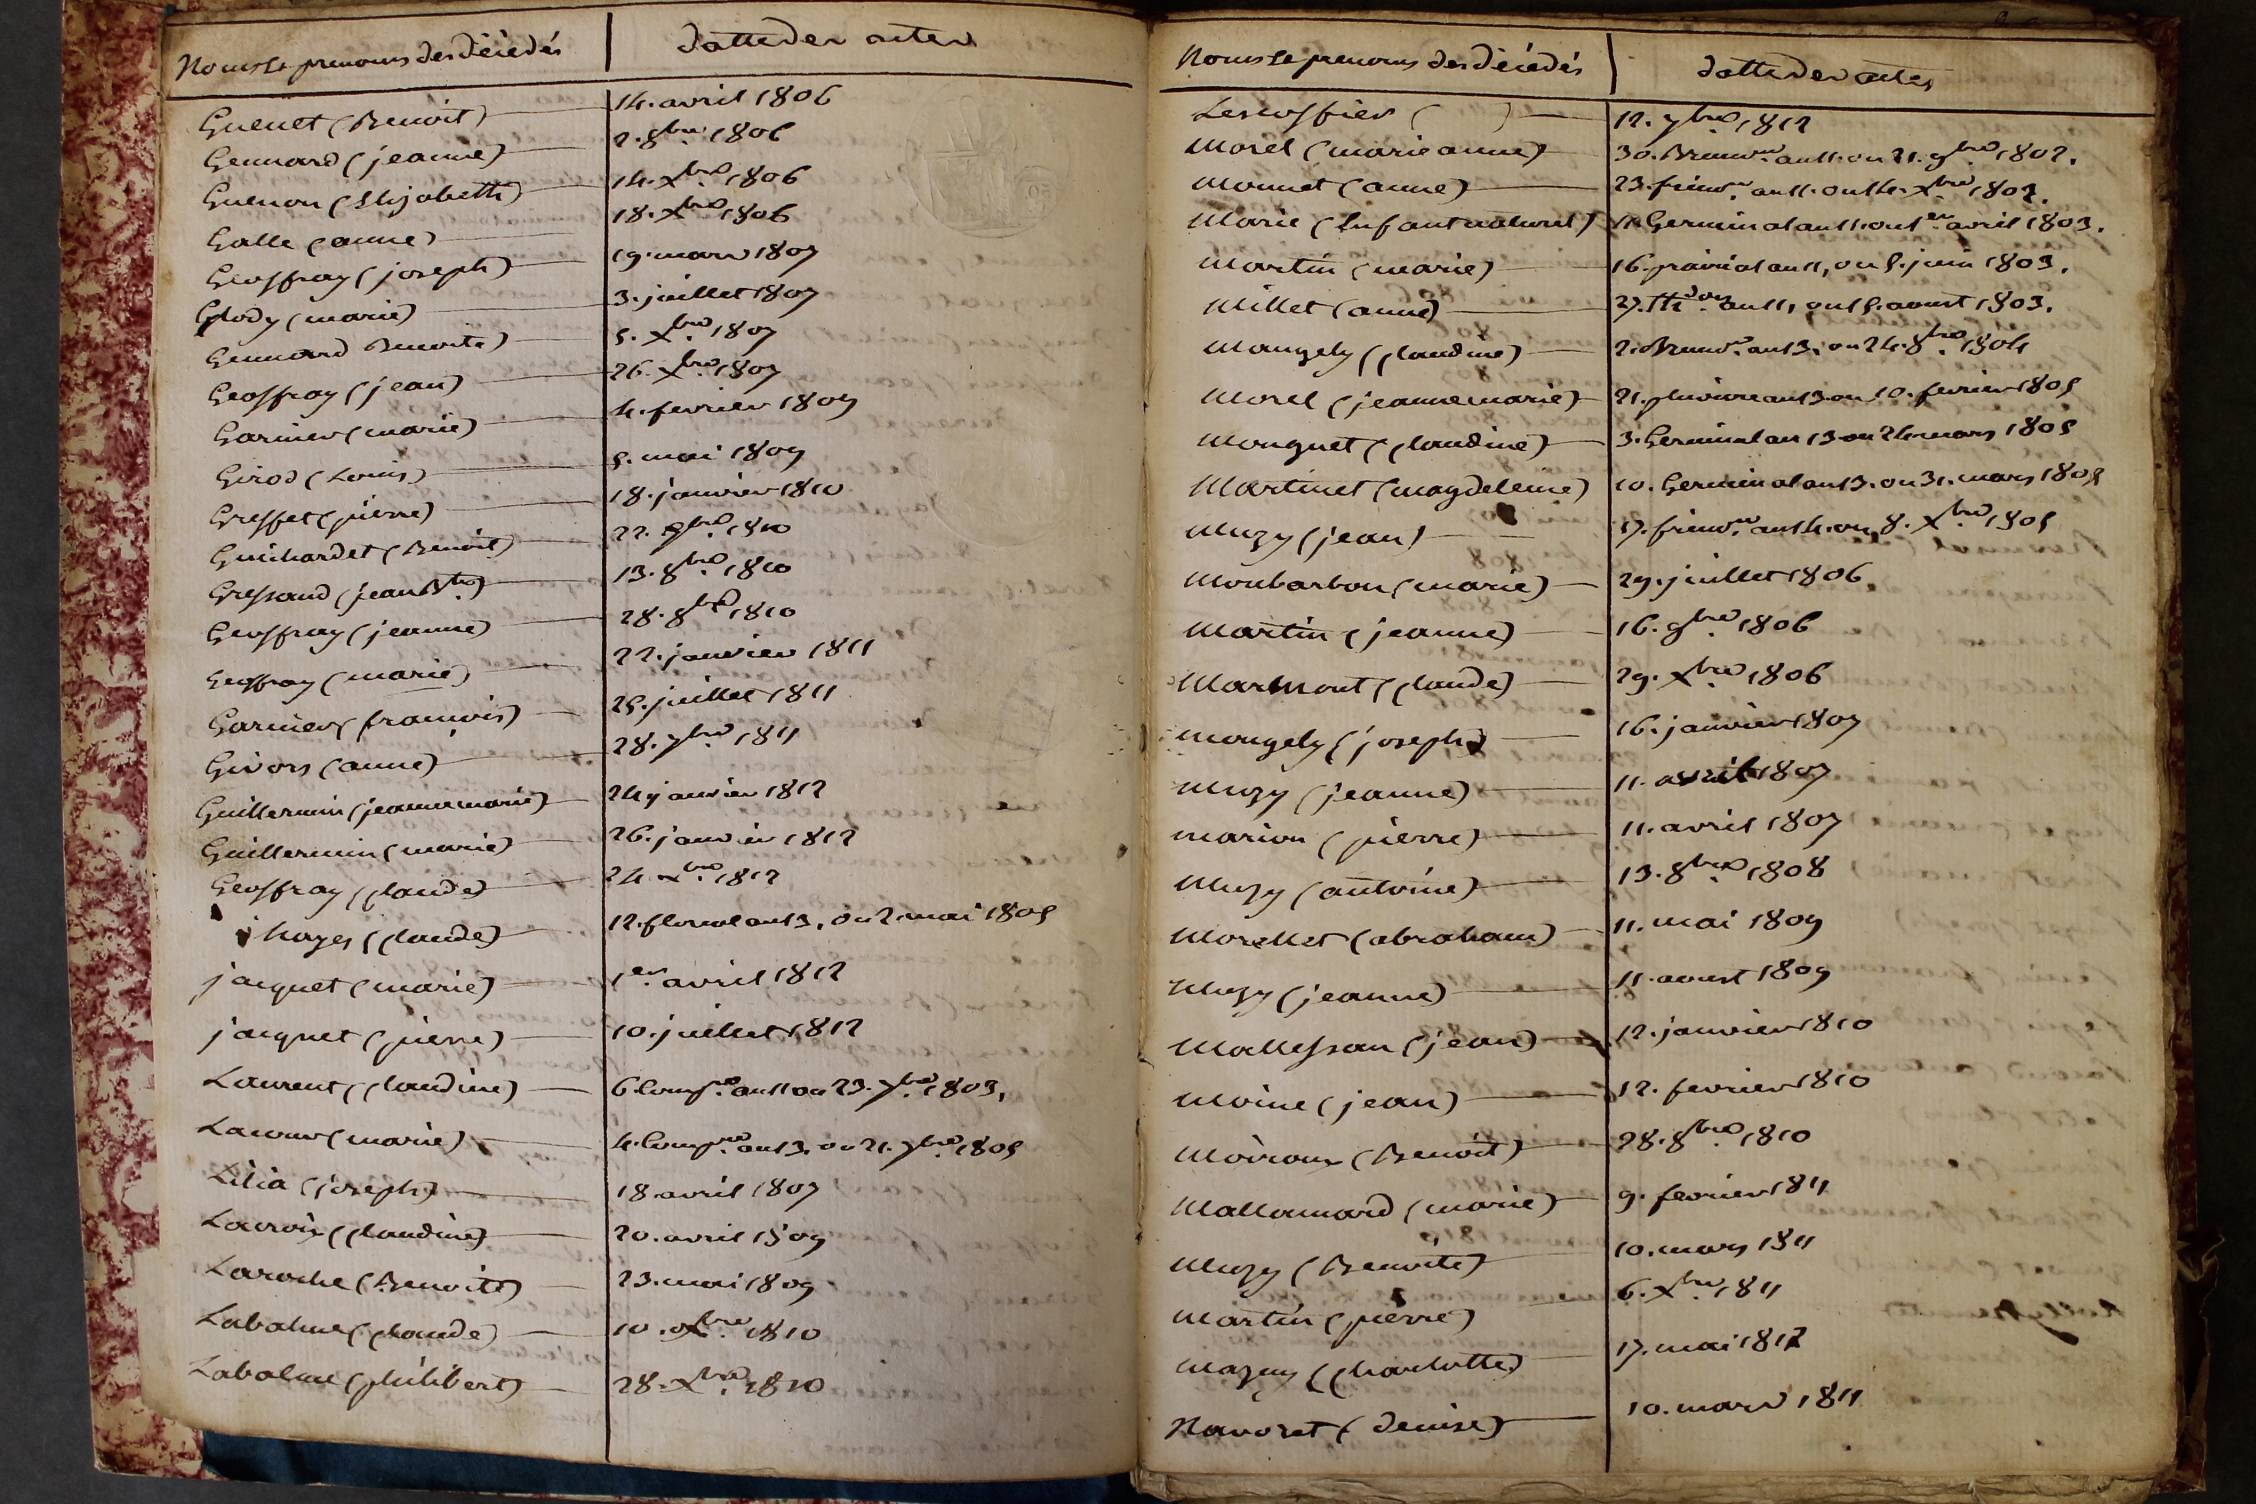 Noms & prenoms des décédés | dattedes actes
Guenet (Benoit) 14. avril 1806
Gennard (jeanne) 2. 8bre. 1806
Guenon (Elizabeth) 14. Xbre. 1806
Galle (anne) 18. Xbre 1806
Geoffray (joseph) 19. mars 1807
Glody (marie) 3. juillet 1807
Gennard Benoite) 5. Xbre 1807
Geoffray (jean) 26. Xbre 1807
Garnier (marie) 4. fevrier 1809
Girod (Louis) 5. mai 1809
Greffet (pierre) 18. janvier 1810
Guichardet (Benoit) 22. 9bre. 1810
Gressaud (jean Bte.) 13. 8bre. 1810
Geoffray (jeanne) 28. 8bre 1810
Geoffray (marie) 22. janvier 1811
Garnier (françois) 25. juillet 1811
Givors (anne) 28. 7bre. 1811
Guillermin (jeanne marie) 24 janvier 1812
Guillermin (marie) 26. janvier 1812
Geoffray (Claude) 24 Xbre. 1812
hayes (Claude) 12. floreal an 13. ou 2. mai 1805
jacquet (marie) 1er. avril 1812
jacquet (pierre) 10. juillet 1812
Laurent (Claudine) 6 Compre. an 11 ou 23. 7bre. 1803.
Lacour (marie) 4. Compre. an 13. ou 21. 7bre. 1805
Lilia (joseph) 18 avril 1807
Lacroix (Claudine) 20. avril 1809
Laroche (Benoite) 23. mai 1809
Labalme (Claude) 10. Xbre. 1810
Labalme (philibert) 28. Xbre. 1810
Noms & prenoms des décédés | datte des actes
Lescoffier ( ) 12. 7bre. 1812
Morel (marie anne) 30. Brumre. an 11. ou 21. 9bre. 1802.
Monnet (anne) 23. frimre. an 11. ou 14. Xbre. 1802.
Marie (Enfant naturel) 11. Germinal an 11. ou 1er. avril 1803.
Martin (marie) 16. prairial an 11, ou 5. juin 1803.
Millet (anne) 27. Thdor. an 11, ou 15. aoust 1803.
Mangely (Claudine) 2. Brumre. an 13. ou 24. 8bre. 1804
Morel (jeanne marie) 21. pluviose an 13 ou 10. fevrier 1805
Monguet (Claudine) 3. Germinal an 13 ou 24 mars 1805
Martinet (magdeleine) 10. Germinal an 13. ou 31. mars 1805
Muzy (jean) 17. frimre. an 14. ou 8. Xbre. 1805
Monbarbon (marie) 29. juillet 1806
Martin (jeanne) 16. 9bre. 1806
Marmont (Claude) 29. Xbre. 1806
Mongely (joseph) 16. janvier 1807
Muzy (jeanne) 11. avril 1807
Marion (pierre) 11. avril 1807
Muzy (antoine) 13. 8bre. 1808
Morellet (abraham) 11. mai 1809
Muzy (jeanne) 11. aoust 1809
Mallessan (jean) 12. janvier 1810
Moine (jean) 12. fevrier 1810
Moiroux (Benoit) 28. 8bre. 1810
Mallamard (marie) 9. fevrier 1811
Muzy (Benoite) 10. mars 1811
Martin (pierre) 6. Xbre. 1811
Mazuy (Charlotte) 17. mai 1812
Navoret (denise) 10. mars 1811